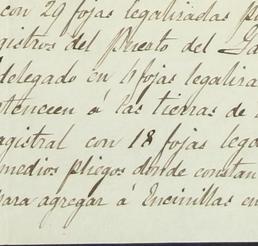 con 29 fojas legalizadas p
gistros del Puesto del Ga
delegado en 6 fojas legaliza
tenceen á las tierras de
agistral con 18 fojas lega
medios pliegos donde constan
para agregar á Encinillas en